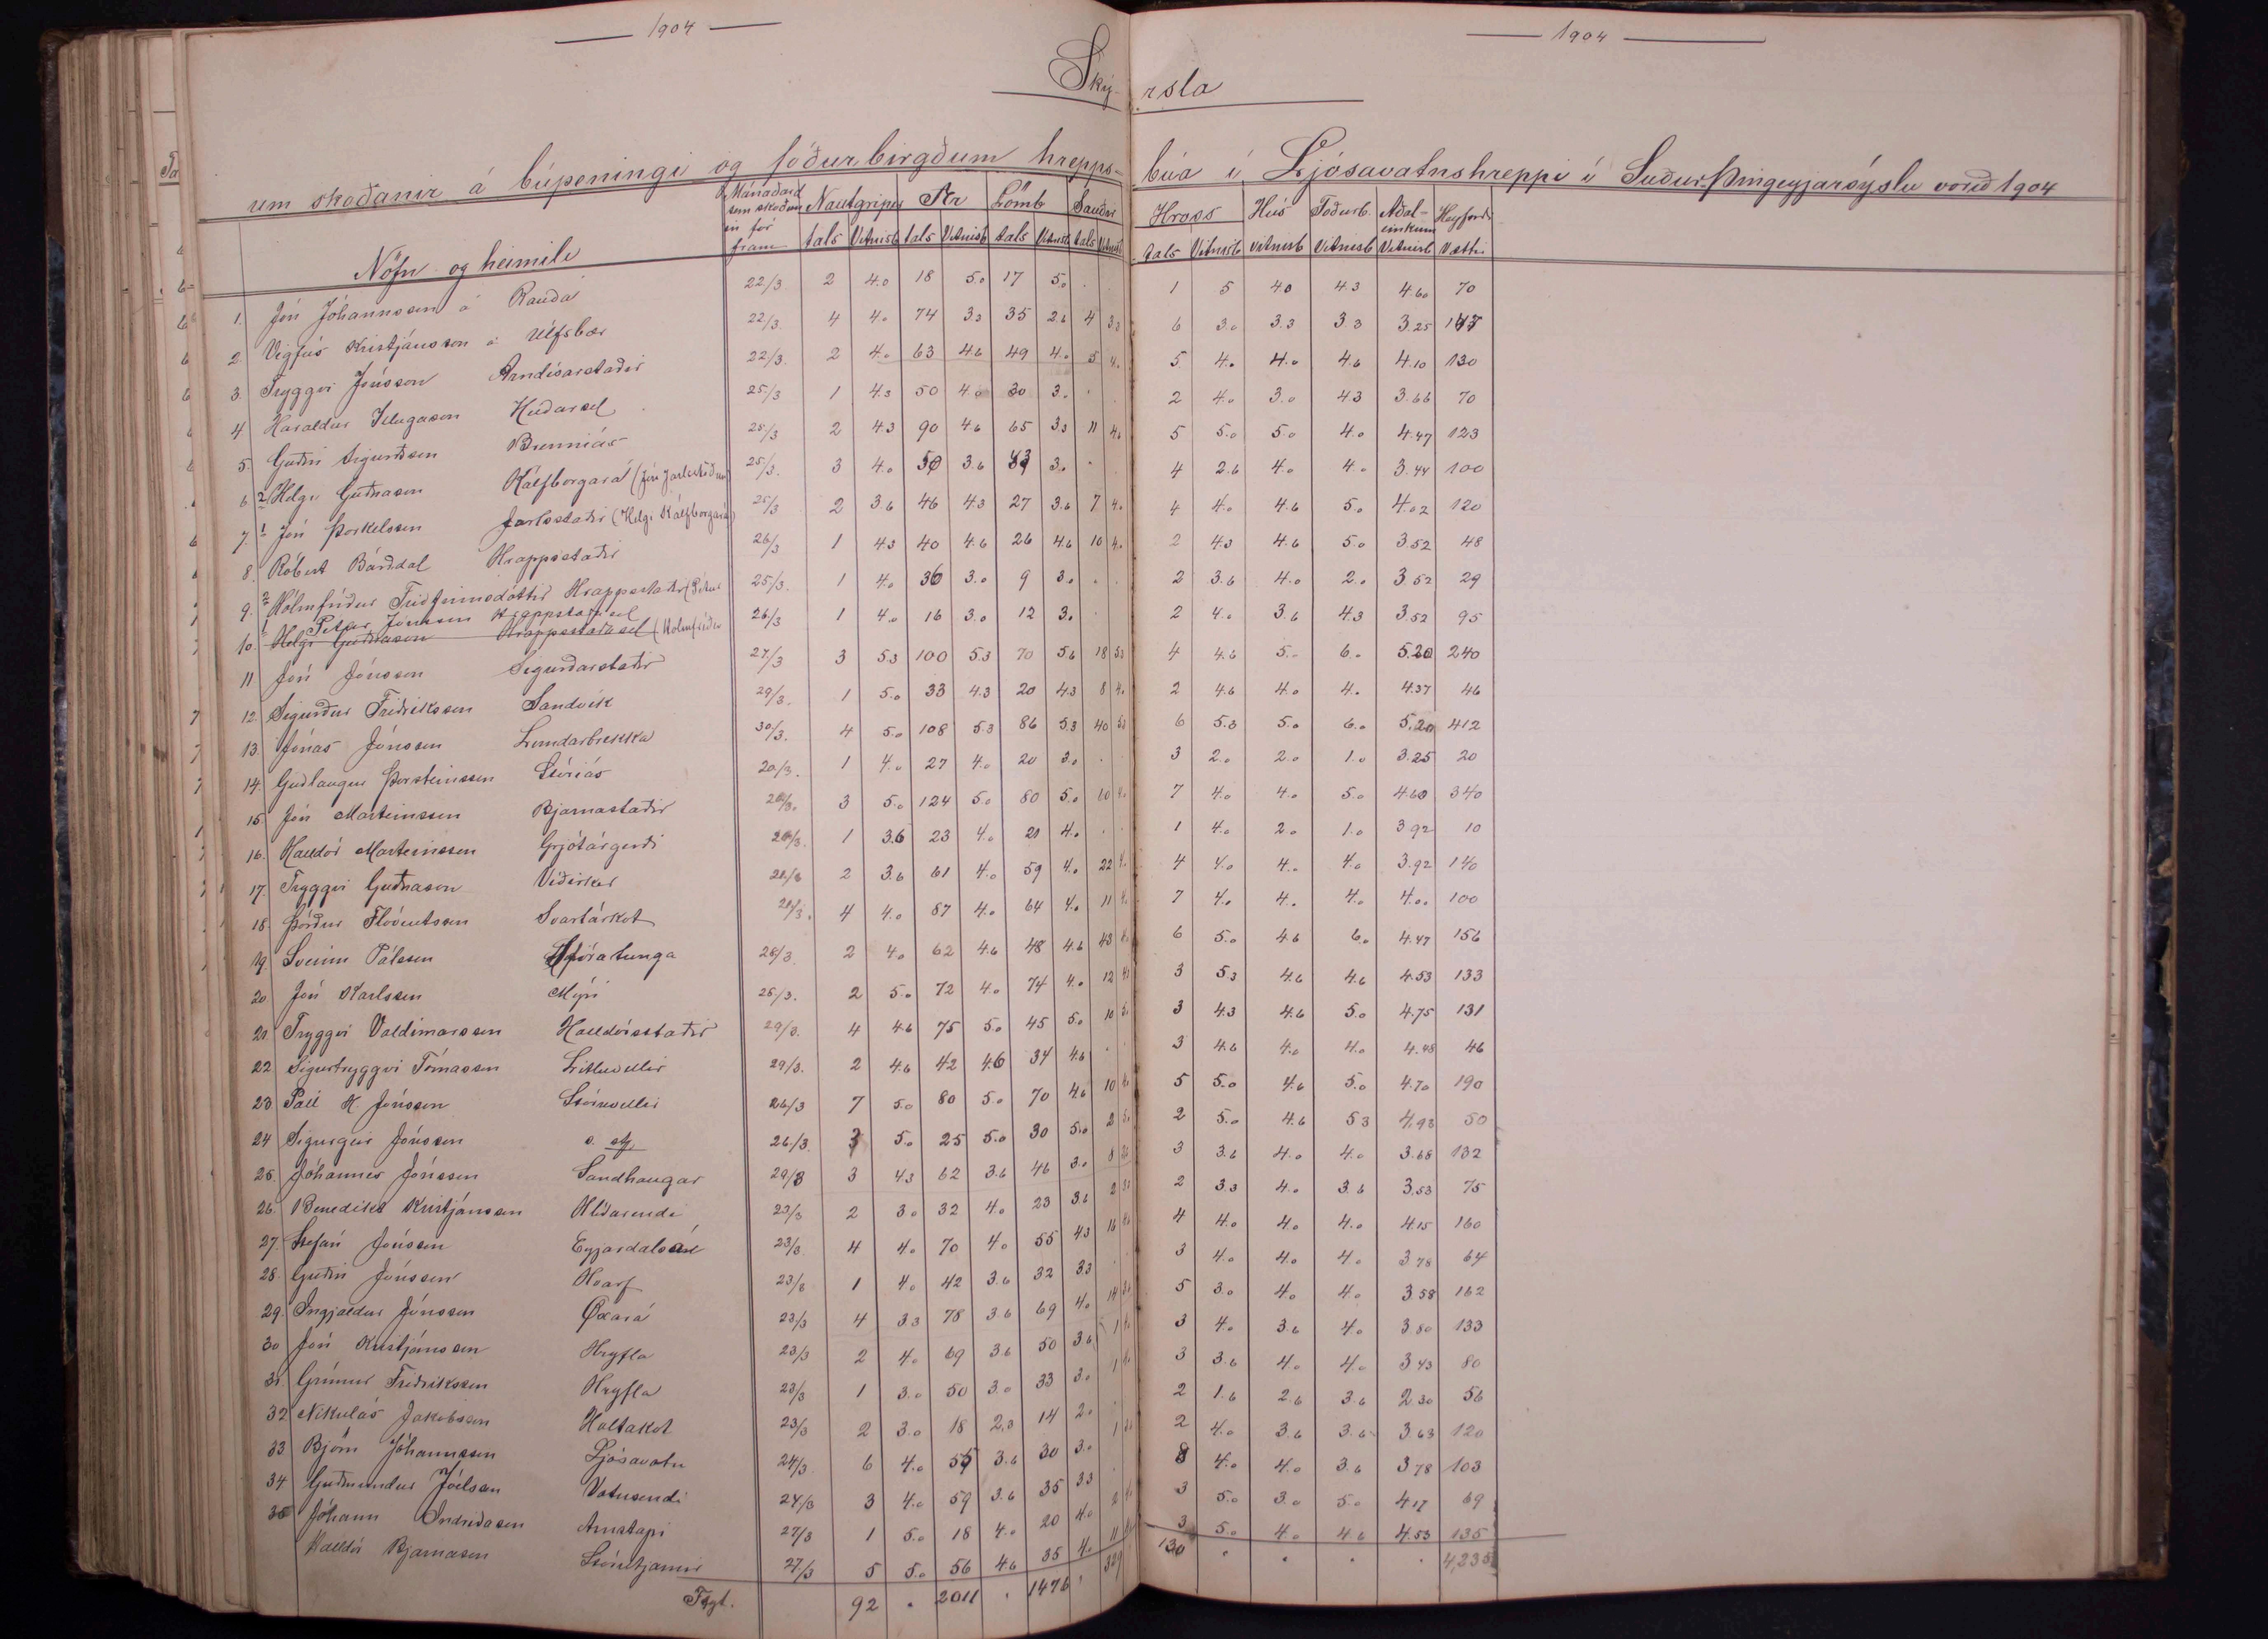 1904
1904
Ský-
rsla
um skoðanir á búpeningi og fóðurbirgðum hrepps-
búa í Ljósavatnshreppi í Suður-Þingeyjarsýslu vorið 1904
Nöfn og heimili | Mánaðard sem skoðunin fór fram | Nautgripir | Ær | Lömb | Sauðir | Hross | Hús | Fóðurb. | Aðaleinkunn | Heyforði
tals | Vitnisb | tals | Vitnisb | tals | Vitnisb | tals | Vitnisb | tals | Vitnisb | Vitnisb | Vitnisb | Vitnisb | Vætti
1. Jón Jóhannsson á Rauðá 22/3 2 4.0 18 5.0 17 5.0 1 5 4.0 4.3 4.60 70
2. Vigfús Kristjánsson á Úlfsbær 22/3. 4 4.0 74 3.3 35 2.6 4 3.3 6 3.0 3.3 3.3 3.25
3. Tryggvi Jónsson Arndísarstaðir 22/3. 2 4.0 63 4.6 49 4.0 5 4.0 5 4.0 4.0 4.6 4.10 130
4 Haraldur Illugason Hlíðarsel 25/3 1 4.3 50 4.0 30 3.0 2 4.0 3.0 4.3 3.66 70
5. Guðni Sigurðsson Brenniás 25/3 2 4.3 90 4.6 65 3.3 11 4.6 5 5.0 5.0 4.0 4.47 123
6. 2 Helgi Guðnason Kálfborgará (Jón Jarlsstöðum) 25/3. 3 4.0 50 3.6 3.0 4 2.6 4.0 4.0 3.44 100
7. 1 Jón Þorkelsson Jarlsstaðir (Helgi Kálfborgará) 25/3 2 3.6 46 4.3 27 3.6 7 4.0 4 4.0 4.6 5.0 4.02 120
8. Róbert Bárðdal Hrappsstaðir 26/3 1 4.3 40 4.6 26 4.6 10 4.0 2 4.3 4.6 5.0 3.52 48
9. 2 Hólmfríður Friðfinnsdóttir Hrappsstaðir (Pétur 25/3. 1 4.0 36 3.0 9 3.0 2 3.6 4.0 2.0 3.52 29
1 Pétur Jónsson Krappstaðasel
10. Helgi Guðnason Hrappsstaðasel (Hólmfríður 26/3 1 4.0 16 3.0 12 3.0 2 4.0 3.6 4.3 3.52 95
11 Jón Jónsson Sigurðarstaðir 27/3 3 5.3 100 5.3 70 5.6 18 5.3 4 4.6 5.0 6.0 5.20 240
12. Sigurður Friðriksson Sandvík 29/3. 1 5.0 33 4.3 20 4.3 8 4.0 2 4.6 4.0 4.0 4.37 46
13. Jónas Jónsson Lundarbrekka 30/3. 4 5.0 108 5.3 86 5.3 40 5.3 6 5.3 5.0 6.0 5.20 412
14. Guðlaugur Þorsteinsson Stóriás 20/3. 1 4.0 27 4.0 20 3.0 3 2.0 2.0 1.0 3.25 20
15. Jón Marteinsson Bjarnastaðir 3 5.0 124 5.0 80 5.0 7 4.0 4.0 5.0 4.60 340
16. Halldór Marteinsson Grjótárgerði 1 3.6 23 4.0 21 4.0 1 4.0 2.0 1.0 3.92 10
17. Tryggvi Guðnason Víðirker 2 3.6 61 4.0 59 4.0 22 4.0 4 4.0 4.0 4.0 3.92 140
18. Þórður Flóventsson Svartárkot 4 4.0 87 4.0 64 4.0 11 4.0 7 4.0 4.0 4.0 4.00 100
19. Sveinn Pálsson Stóratunga 28/3. 2 4.0 62 4.6 48 4.6 43 6 5.0 4.6 6.0 4.47 156
20 Jón Karlsson Mýri 28/3. 2 5.0 72 4.0 74 4.0 12 3 5.3 4.6 4.6 4.53 133
21. Tryggvi Valdimarsson Halldórsstaðir 29/3. 4 4.6 75 5.0 45 5.0 10 3 4.3 4.6 5.0 4.75 131
22 Sigurtryggvi Tómasson Litluvellir 29/3. 2 4.6 42 4.6 34 4.6 3 4.6 4.0 4.0 4.48 46
23 Páll H. Jónsson Stóruvellir 26/3 7 5.0 80 5.0 70 4.6 10 5 5.0 4.6 5.0 4.70 190
24 Sigurgeir Jónsson s. st. 26/3. 3 5.0 25 5.0 30 5.0 2 2 5.0 4.6 5.3 4.93 50
25. Jóhannes Jónsson Sandhaugar 29/3 3 4.3 62 3.6 46 3.0 8 3 3.6 4.0 4.0 3.68 132
26. Benedikt Kristjánsson Hlíðarendi 23/3 2 3.0 32 4.0 23 3.6 2 2 3.3 4.0 3.6 3.53 75
27. Stefán Jónsson Eyjardalsá 23/3 4 4.0 70 4.0 55 4.3 16 4 4.0 4.0 4.0 4.15 160
28. Guðni Jónsson Hvarf 23/3 1 4.0 42 3.6 32 3.3 3 4.0 4.0 4.0 3.78 64
29. Ingjaldur Jónsson Öxará 23/3 4 3.3 78 3.6 69 4.0 14 5 3.0 4.0 4.0 3.58 162
30 Jón Kristjánsson Hryfla 23/3 2 4.0 69 3.6 50 3.6 1 3 4.0 3.6 4.0 3.80 133
31. Grímur Friðriksson Hryfla 23/3 1 3.0 50 3.0 33 3.0 1 3 3.6 4.0 4.0 3.43 80
32 Nikulás Jakobsson Holtakot 23/3 2 3.0 18 2.3 14 2.0 2 1.6 2.6 3.6 2.30 56
33 Björn Jóhannsson Ljósavatn 24/3. 6 4.0 55 3.6 30 3.0 1 2 4.0 3.6 3.6 3.63 120
34 Guðmundur Jóelsson Vatnsendi 24/3 3 4.0 59 3.6 35 3.3 8 4.0 4.0 3.6 3.78 103
35 Jóhann Indriðason Arnstapi 27/3 1 5.0 18 4.0 20 4.0 2 3 5.0 3.0 5.0 4.17 69
Halldór Bjarnason Stórutjarnir 27/3 5 5.0 56 4.6 35 4.0 11 3 5.0 4.0 4.6 4.53 135
Flyt. 92 " 2011 " 1476 " 329 130 " " " " 4,235